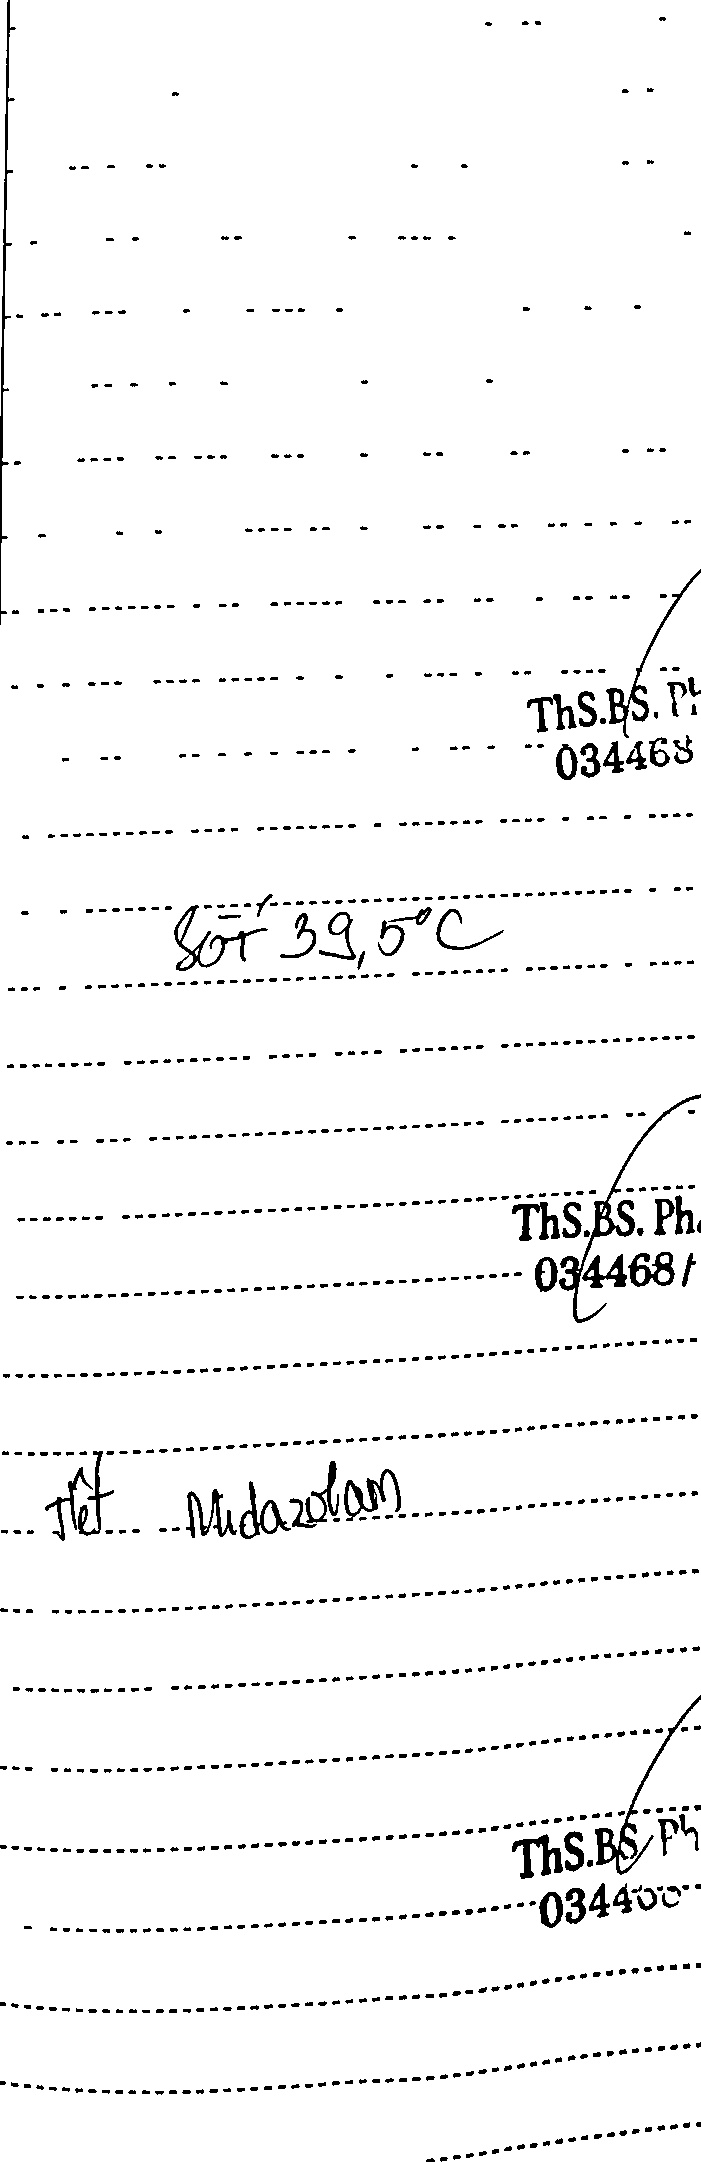 ThS.BS. Ph
034468
Sốt 39,5°C
ThS.BS. Ph
034468/
Hết Midazolam
ThS.BS. Ph
0344